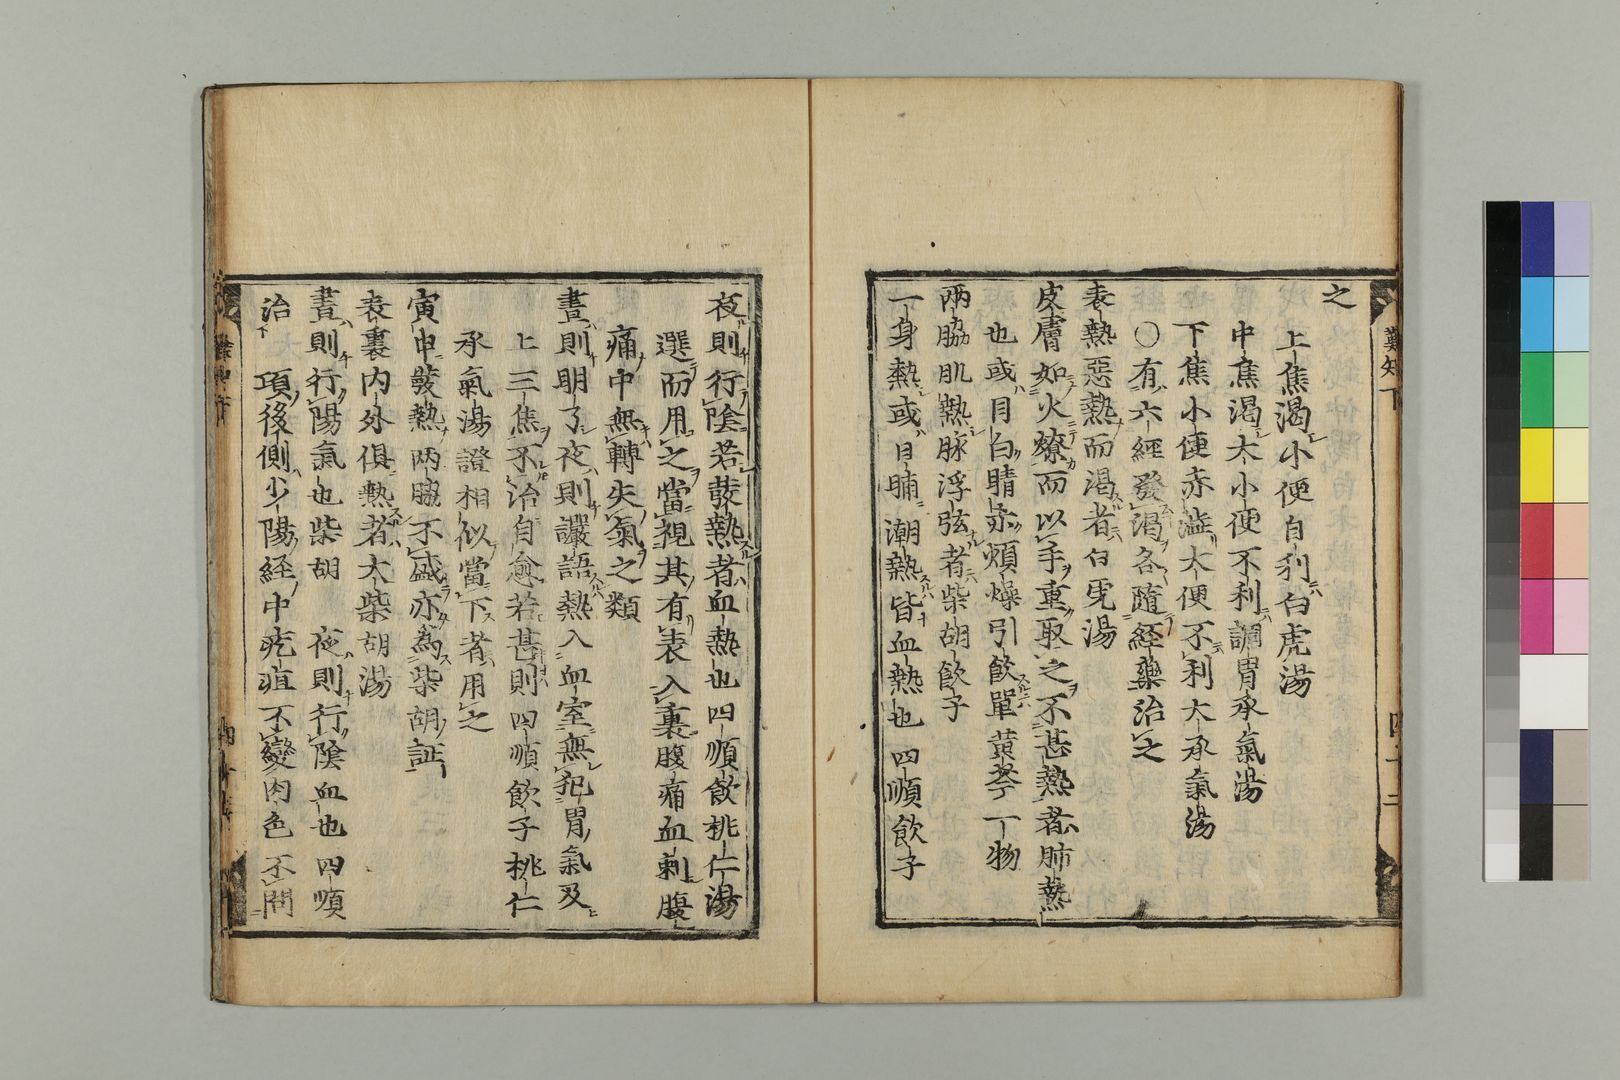 之
上焦渴小便自利白虎湯
中焦渴大小便不利調胃承氣湯
下焦小便赤澁大便不利大承氣湯
○有六經發渴各隨經藥治之
表熱惡熱而渴者白虎湯
皮膚如火燎而以手重取之不甚熱者肺熱
也或目白睛赤煩燥引飲單黃芩一物
兩脇肌熱脉浮弦者柴胡飲子
一身熱或日晡潮熱皆血熱也四順飲子
夜則行陰若發熱者血熱也四順飲桃仁湯
選而用之當視其有表入裏腹痛血刺腹
痛中無轉失氣之類
晝則明了夜則讝語熱入血室無犯胃氣及
上三焦不治自愈若甚則四順飲子桃仁
承氣湯證相似當下者用之
寅申發熱兩脇不盛亦為柴胡証
表裏內外俱熱者大柴胡湯
晝則行陽氣也柴胡 夜則行陰血也四順
治 項後側少陽經中疙瘩不變肉色不問
難知下
四十二